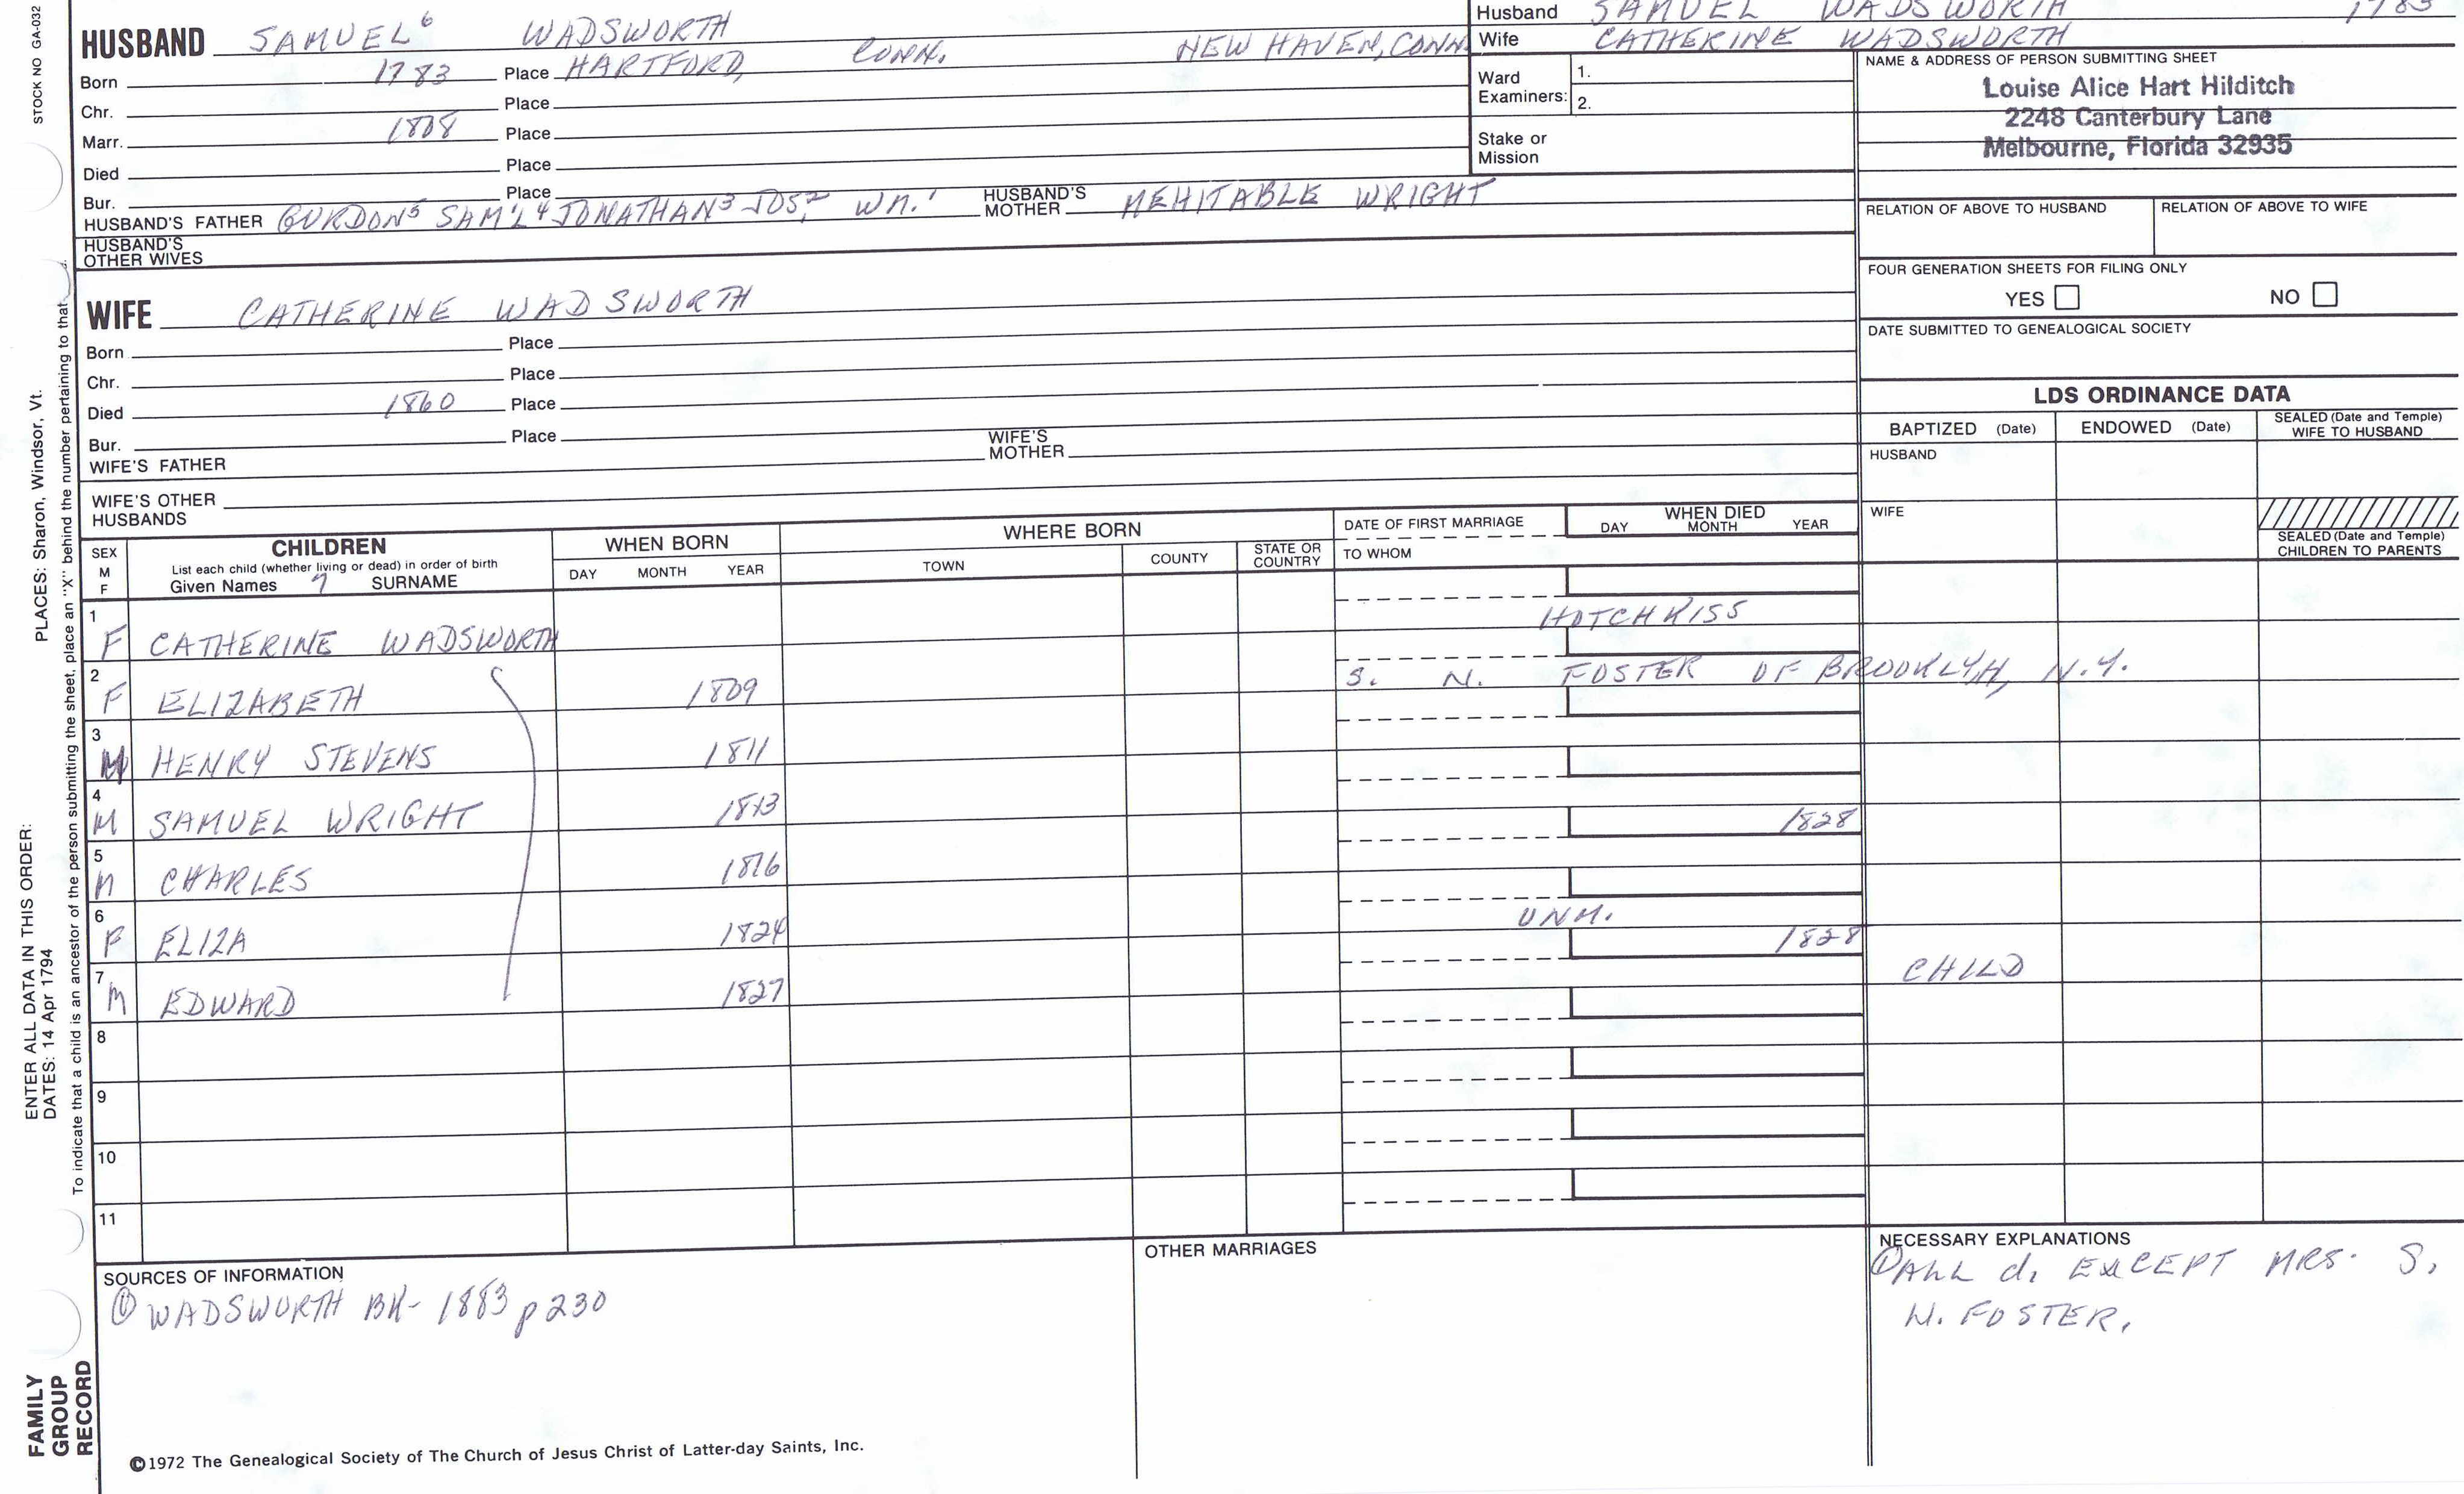 STOCK NO GA-032
Husband SAMUEL WADSWORTH 1783
HUSBAND SAMUEL⁶ WADSWORTH
Wife CATHERINE WADSWORTH
Born 1783 Place HARTFORD, CONN. NEW HAVEN, CONN.
Chr. Place
Marr. 1808 Place
Died Place
Bur. Place
HUSBAND'S FATHER GURDON⁵ SAM'L⁴ JONATHAN³ JOS.² WM.¹ HUSBAND'S MOTHER MEHITABLE WRIGHT
HUSBAND'S
OTHER WIVES
Ward
Examiners: 1.
2.
Stake or
Mission
NAME & ADDRESS OF PERSON SUBMITTING SHEET
Louise Alice Hart Hilditch
2248 Canterbury Lane
Melbourne, Florida 32935
RELATION OF ABOVE TO HUSBAND RELATION OF ABOVE TO WIFE
FOUR GENERATION SHEETS FOR FILING ONLY
YES NO
DATE SUBMITTED TO GENEALOGICAL SOCIETY
WIFE CATHERINE WADSWORTH
Born Place
Chr. Place
Died 1860 Place
Bur. Place
WIFE'S FATHER WIFE'S MOTHER
WIFE'S OTHER
HUSBANDS
LDS ORDINANCE DATA
BAPTIZED (Date) ENDOWED (Date) SEALED (Date and Temple)
WIFE TO HUSBAND
HUSBAND
WIFE
SEALED (Date and Temple)
CHILDREN TO PARENTS
SEX
M
F
CHILDREN
List each child (whether living or dead) in order of birth
Given Names 7 SURNAME
WHEN BORN
DAY MONTH YEAR
WHERE BORN
TOWN COUNTY STATE OR
COUNTRY
DATE OF FIRST MARRIAGE
TO WHOM
WHEN DIED
DAY MONTH YEAR
1 F CATHERINE WADSWORTH HOTCHKISS
2 F ELIZABETH 1809 S. N. FOSTER OF BROOKLYN, N.Y.
3 M HENRY STEVENS 1811
4 M SAMUEL WRIGHT 1813 1828
5 M CHARLES 1816
6 F ELIZA 1824 UNM.
7 M EDWARD 1827 1828 CHILD
8
9
10
11
SOURCES OF INFORMATION
① WADSWORTH BK- 1883 p 230
OTHER MARRIAGES
NECESSARY EXPLANATIONS
① ALL d. EXCEPT MRS. S.
N. FOSTER.
©1972 The Genealogical Society of The Church of Jesus Christ of Latter-day Saints, Inc.
FAMILY
GROUP
RECORD
ENTER ALL DATA IN THIS ORDER:
DATES: 14 Apr 1794
PLACES: Sharon, Windsor, Vt.
To indicate that a child is an ancestor of the person submitting the sheet, place an "X" behind the number pertaining to that